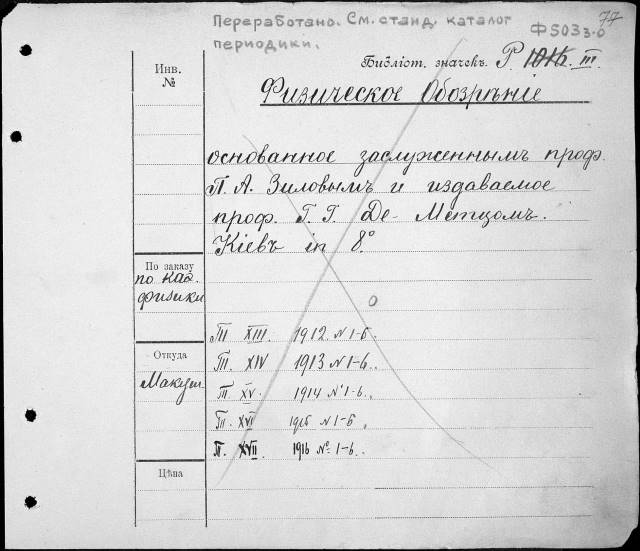 77
Переработано. См. станд. каталог
периодики.
Ф503з-о
Библіот. значекъ. P III.
Инв.
№
Физическое Обозрѣніе
основанное заслуженнымъ проф.
П. А. Зиловымъ и издаваемое
проф. Г. Г. Де-Метцомъ.
Кіевъ in 8º.
По заказу
по каѳ.
физики
Т. XIII. 1912. N 1-6.
Т. XIV 1913. N 1-6.
Откуда
Т. XV. 1914 Nº 1-6.
Т. XVI 1915 N 1-6.
Т. XVII. 1916 Nº 1-6.
Цѣна